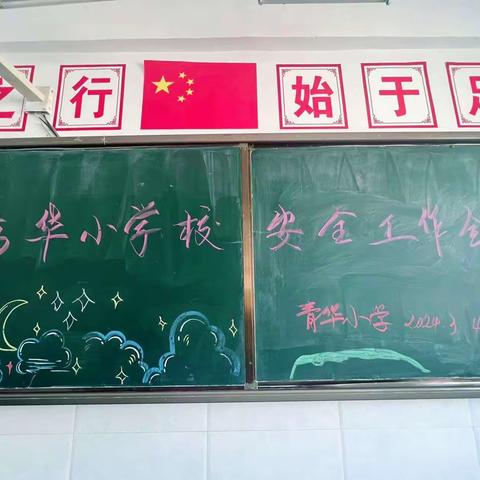 之行 始于足
青华小学校 安全工作会
青华小学 2024.3.4